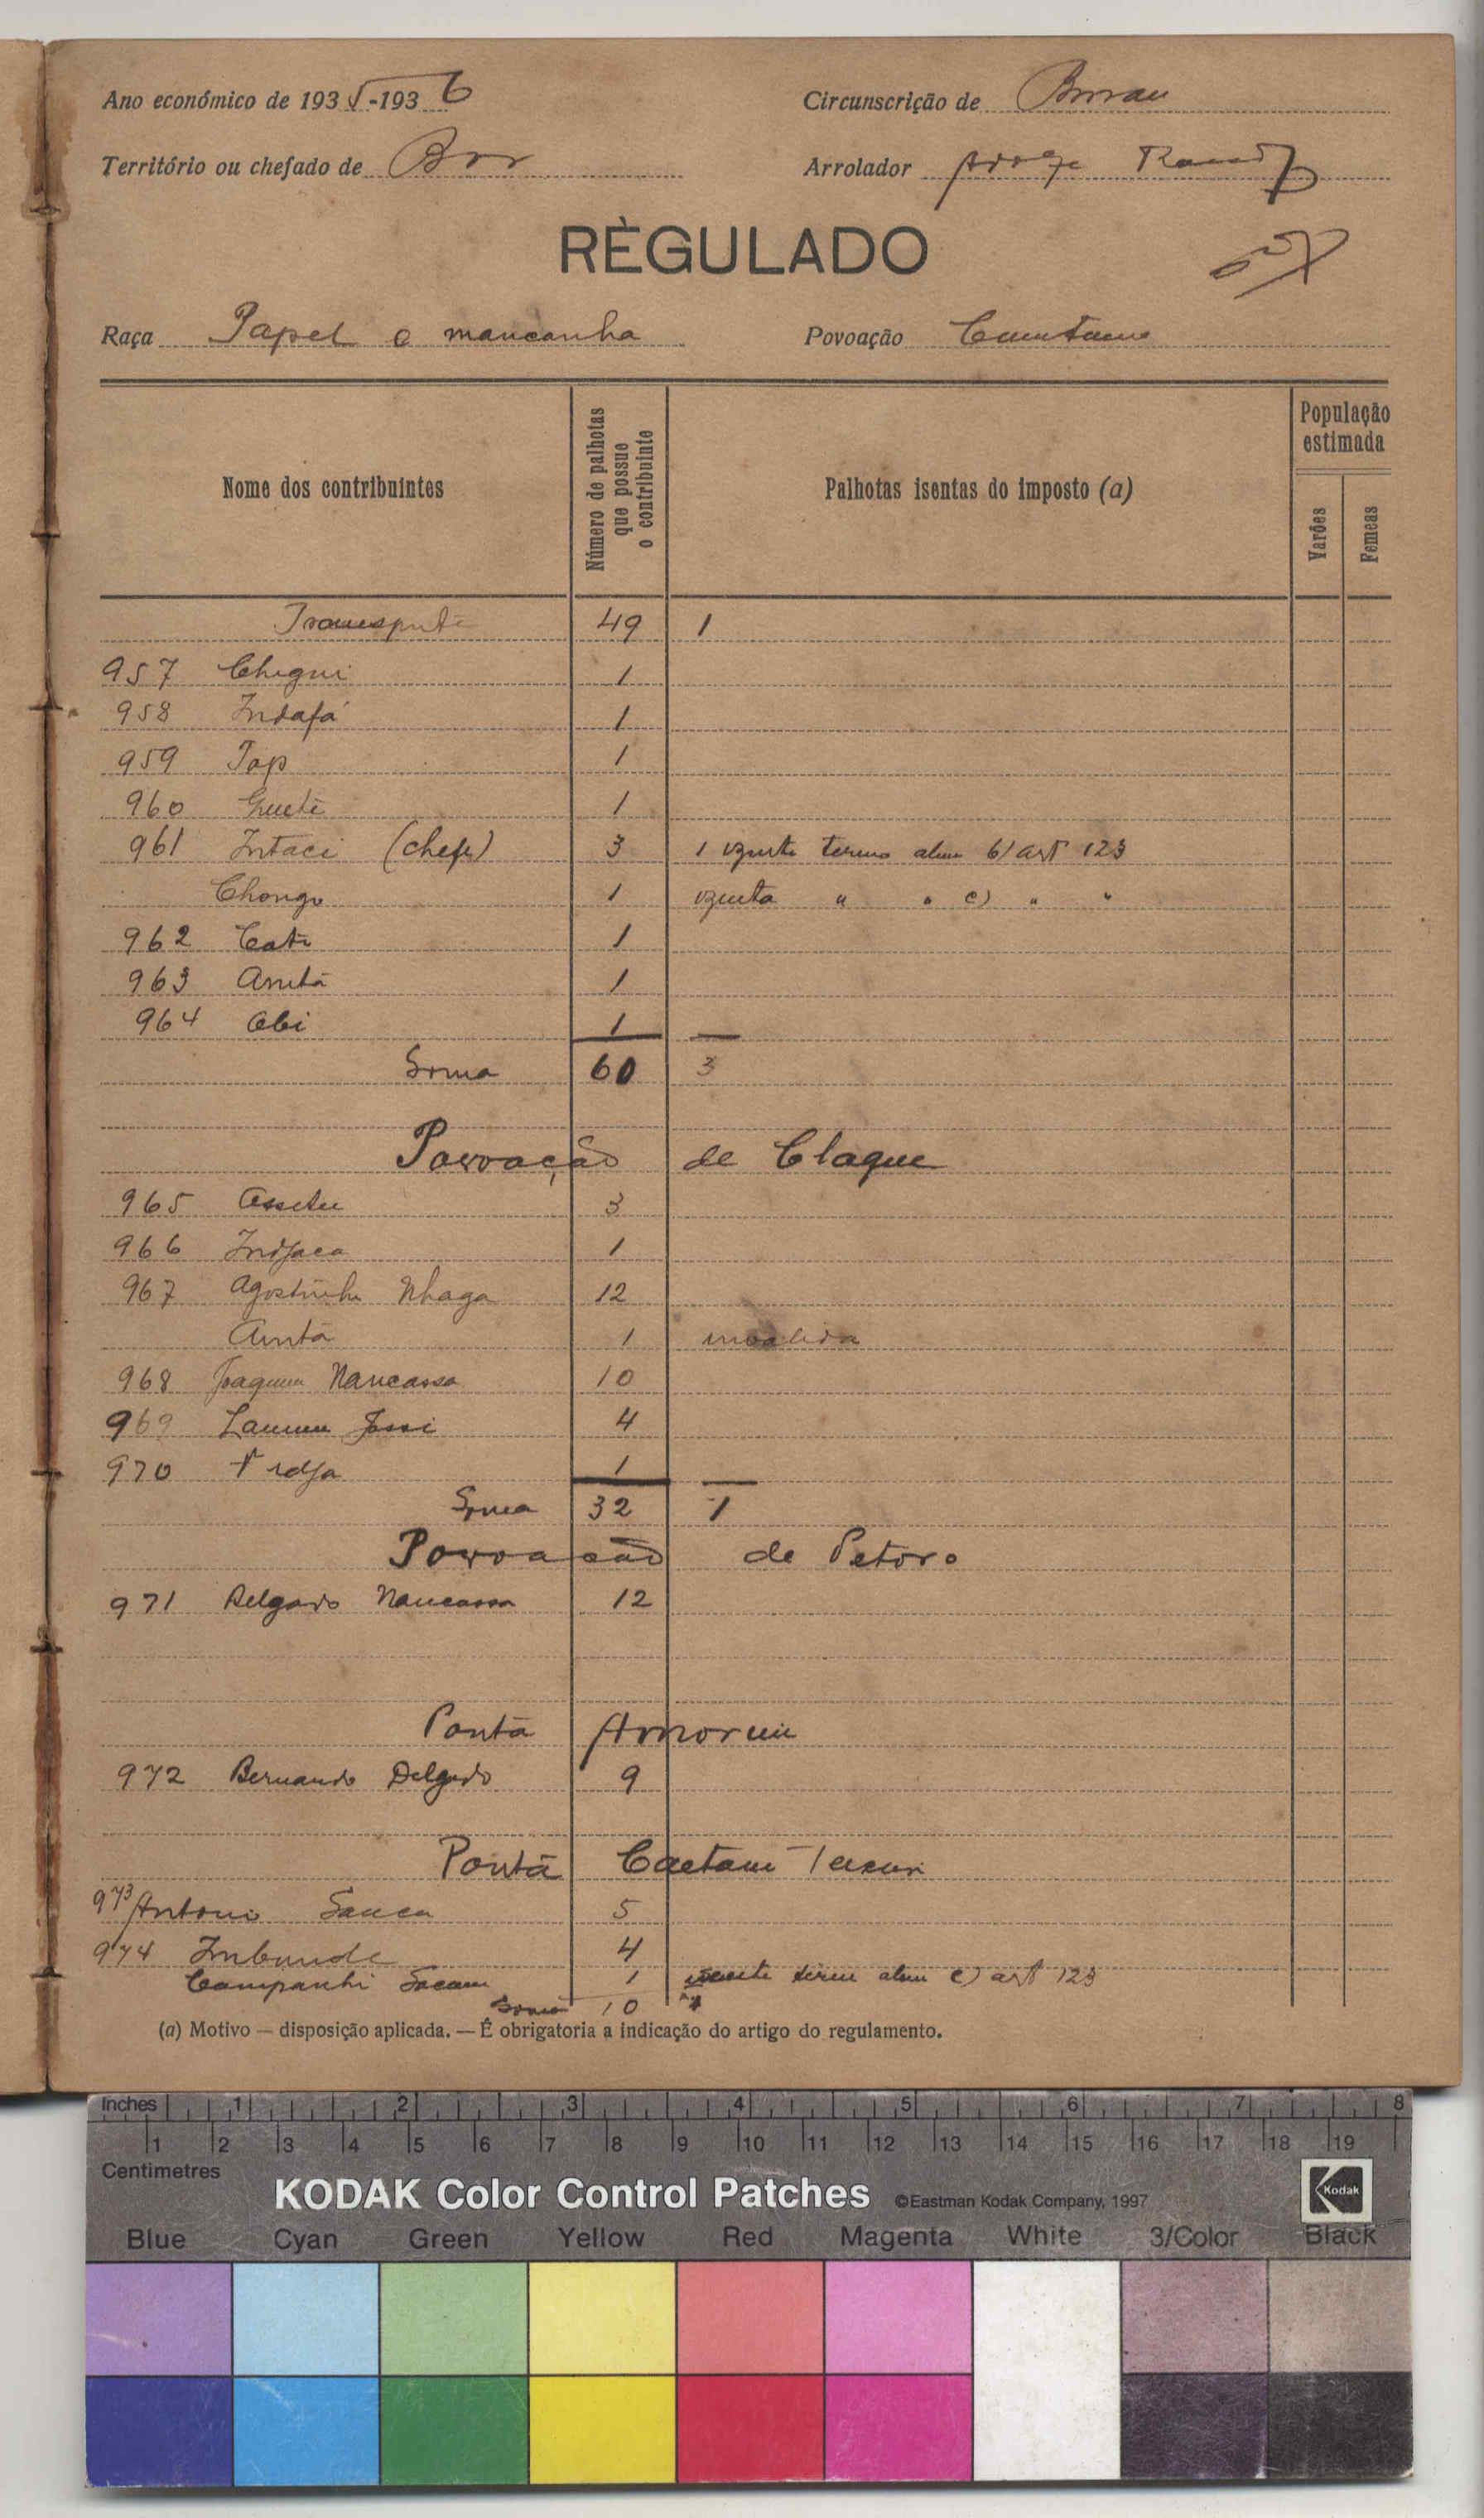 Ano económico de 1935-1936
Circunscrição de Bissau
Território ou chefado de Bor
Arrolador
RÈGULADO
57
Raça Papel e mancanha
Povoação
Nome dos contribuintes
Número de palhotas que possue o contribuinte
Palhotas isentas do imposto (a)
População estimada
Varões
Femeas
Transporte 49 1
957 Chegui 1
958 Indafá 1
959 Jop 1
960 1
961 Intaci (chefe) 3 1 isenta termo alin b) art 123
Chongo 1 isenta " " c) " "
962 Cati 1
963 1
964 Obi 1
Soma 60 3
Povoação de Claque
965 3
966 Indjaca 1
967 Agostinho Nhaga 12
1 invalida
968 Joaquim Nancassa 10
969 4
970 1
Soma 32 1
Povoação de Petoro
971 Delgado Nancassa 12
Ponta Amorim
972 Bernardo Delgado 9
Ponta Caetano
973 Antonio Sanca 5
974 Imbunde 4
1 isenta termo alin c) art 123
Soma 10
(a) Motivo — disposição aplicada. — É obrigatoria a indicação do artigo do regulamento.
Inches 1 2 3 4 5 6 7 8
1 2 3 4 5 6 7 8 9 10 11 12 13 14 15 16 17 18 19
Centimetres
KODAK Color Control Patches ©Eastman Kodak Company, 1997 Kodak
Blue Cyan Green Yellow Red Magenta White 3/Color Black